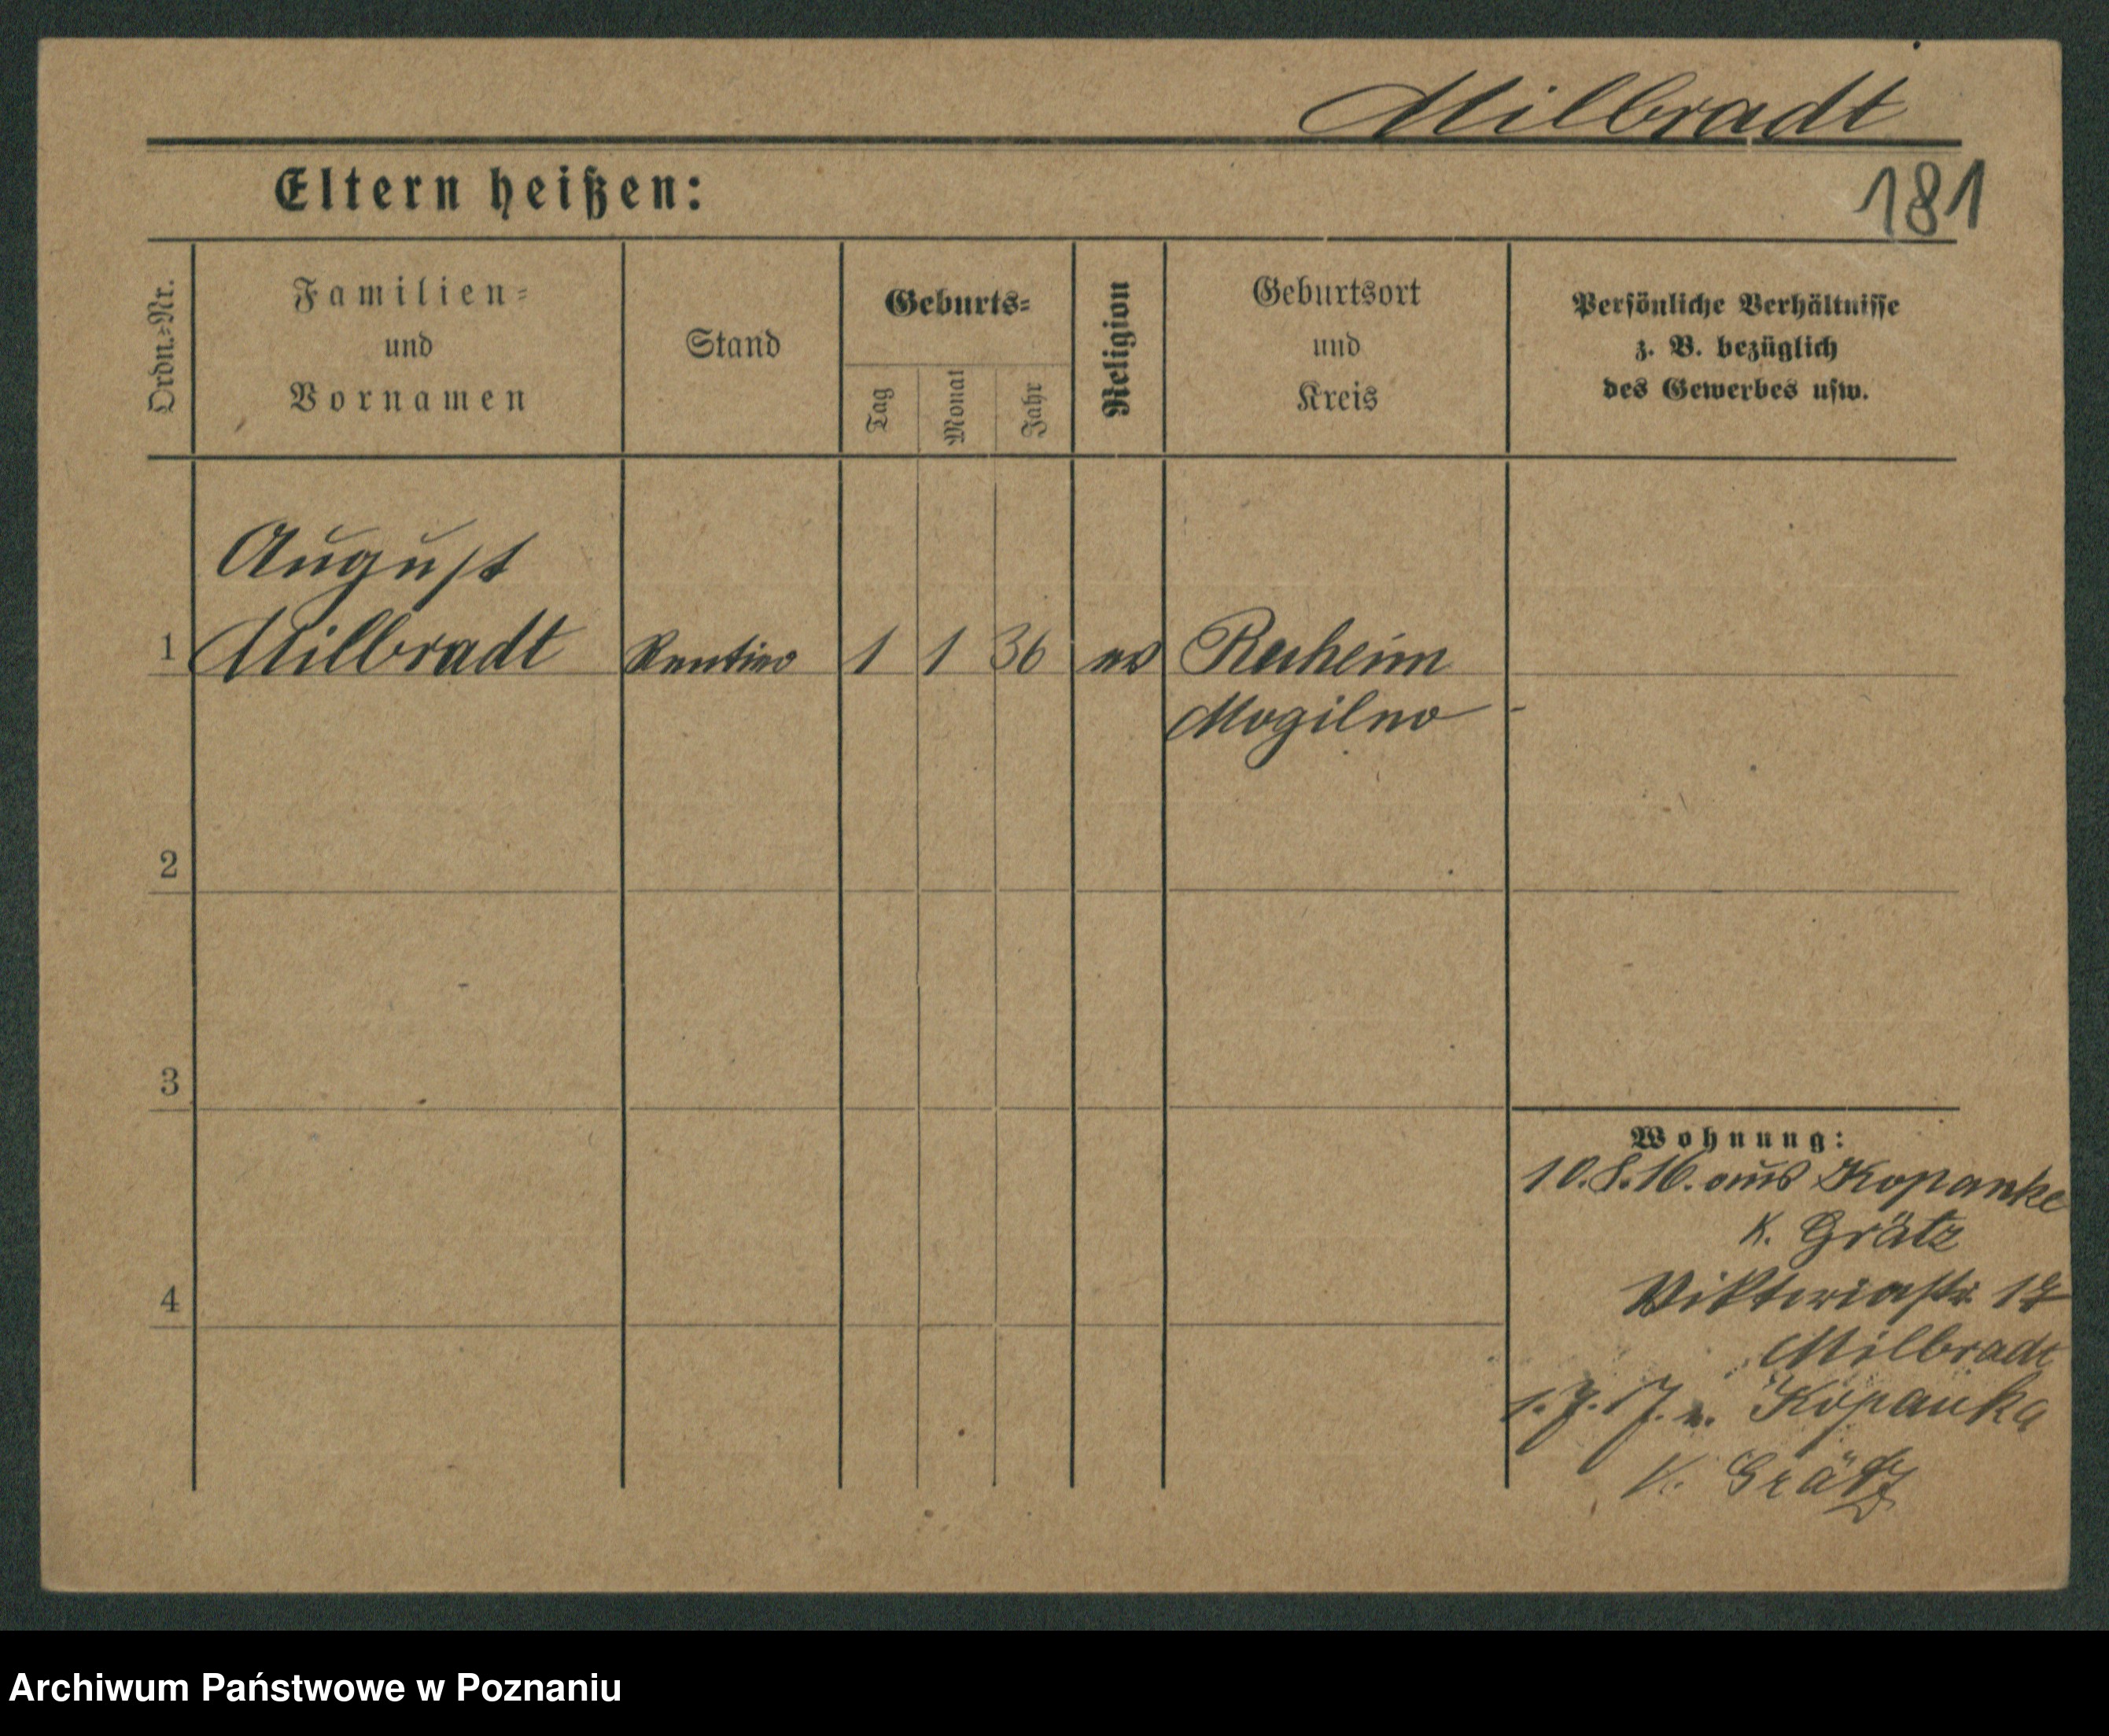 Milbradt
Eltern heißen:
181
Ordn.-Nr.
Familien-
und
Vornamen
Stand
Geburts-
Tag
Monat
Jahr
Religion
Geburtsort
und
Kreis
Persönliche Verhältnisse
z. B. bezüglich
des Gewerbes usw.
August
1 Milbradt Rentier 1 1 36 ev
Mogilno -
2
3
Wohnung:
10.8.16. aus Kopanke
K. Grätz
4
Viktoriastr. 17
Milbradt
1.7.17. n. Kopanka
K. Grätz
Archiwum Państwowe w Poznaniu